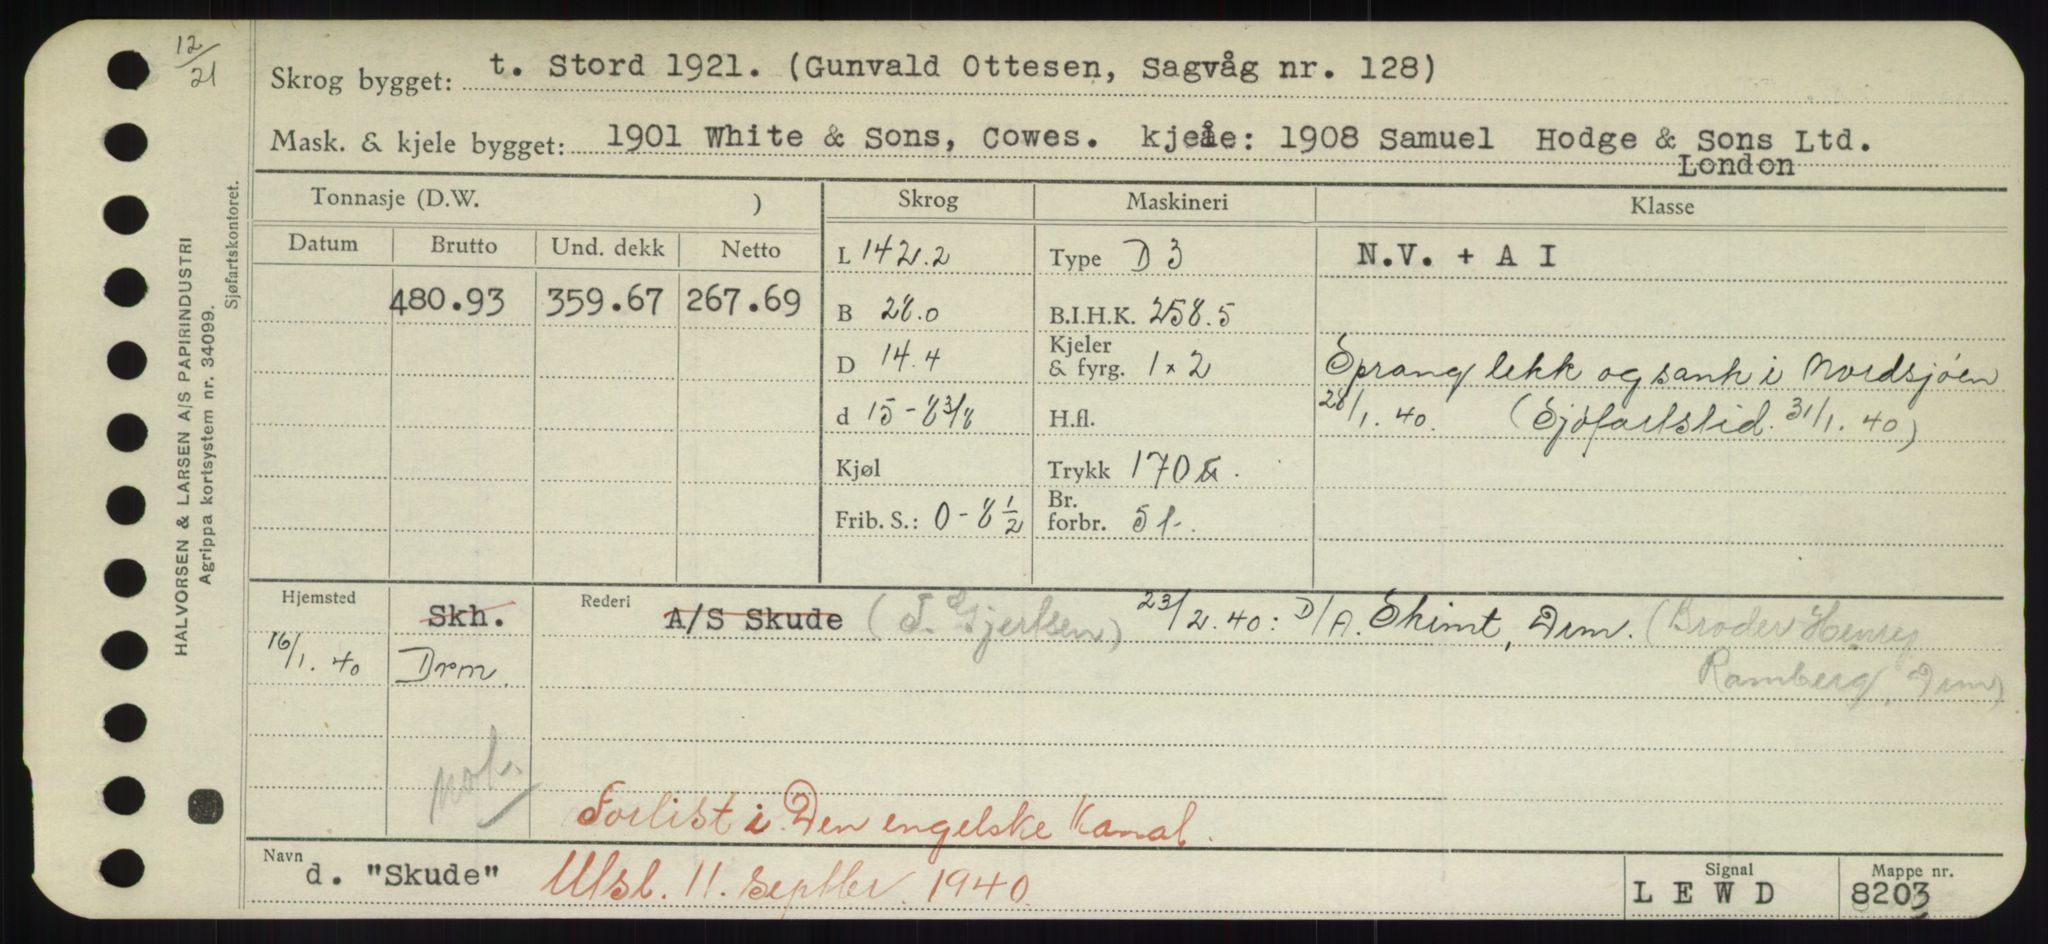 12/21
Skrog bygget: t. Stord 1921. (Gunvald Ottesen, Sagvåg nr. 128)
Mask. & kjele bygget: 1901 White & Sons, Cowes. kjele: 1908 Samuel Hodge & Sons Ltd.
London
Tonnasje (D.W. ) Skrog Maskineri Klasse
Datum Brutto Und. dekk Netto L 142.2 Type D 3 N.V. + A I
480.93 359.67 267.69 B 28.0 B.I.H.K. 258.5
D 14.4 Kjeler & fyrg. 1 x 2 Sprang lekk og sank i Nordsjøen
d 15 - 8 3/8 H.fl. 28/1. 40. (Sjøfartstid. 31/1. 40)
Kjøl Trykk 170
Frib. S.: 0 - 8 1/2 Br. forbr. 5 t.
Hjemsted Skh. Rederi A/S Skude (T. Gjertsen) 23/2. 40: D/A. Skimt, Drm. (Broder Henry
16/1. 40 Drm. Ramberg, Drm)
not.
Forlist i Den engelske Kanal.
Navn d. "Skude" Utsl. 11. septber. 1940. Signal L E W D Mappe nr. 8203
HALVORSEN & LARSEN A/S PAPIRINDUSTRI
Agrippa kortsystem nr. 34099.
Sjøfartskontoret.